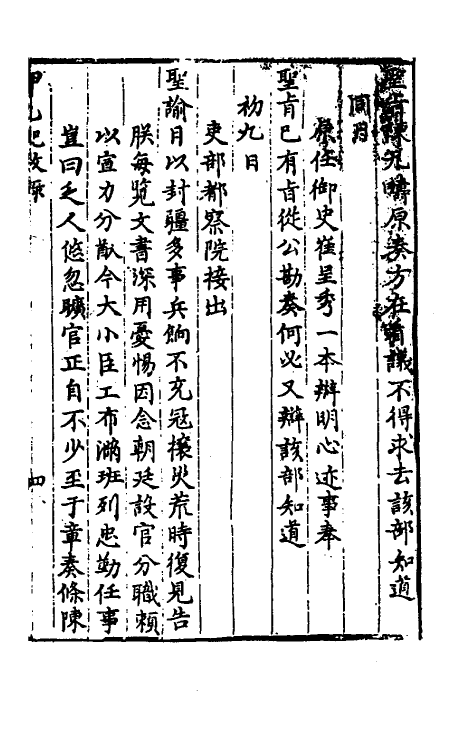 聖旨陳九疇原奏方在會議不得求去該部知道
同日
原任御史崔呈秀一本辯明心迹事奉
聖旨已有旨從公勘奏何必又辯該部知道
初九日
吏部都察院接出
聖諭目以封疆多事兵餉不充寇攘災荒時復見告
朕每覧文書深用憂惕因念朝廷設官分職賴
以宣力分猷今大小臣工布滿班列忠勤任事
豈曰乏人悠忽曠官正自不少至于章奏條陳
四